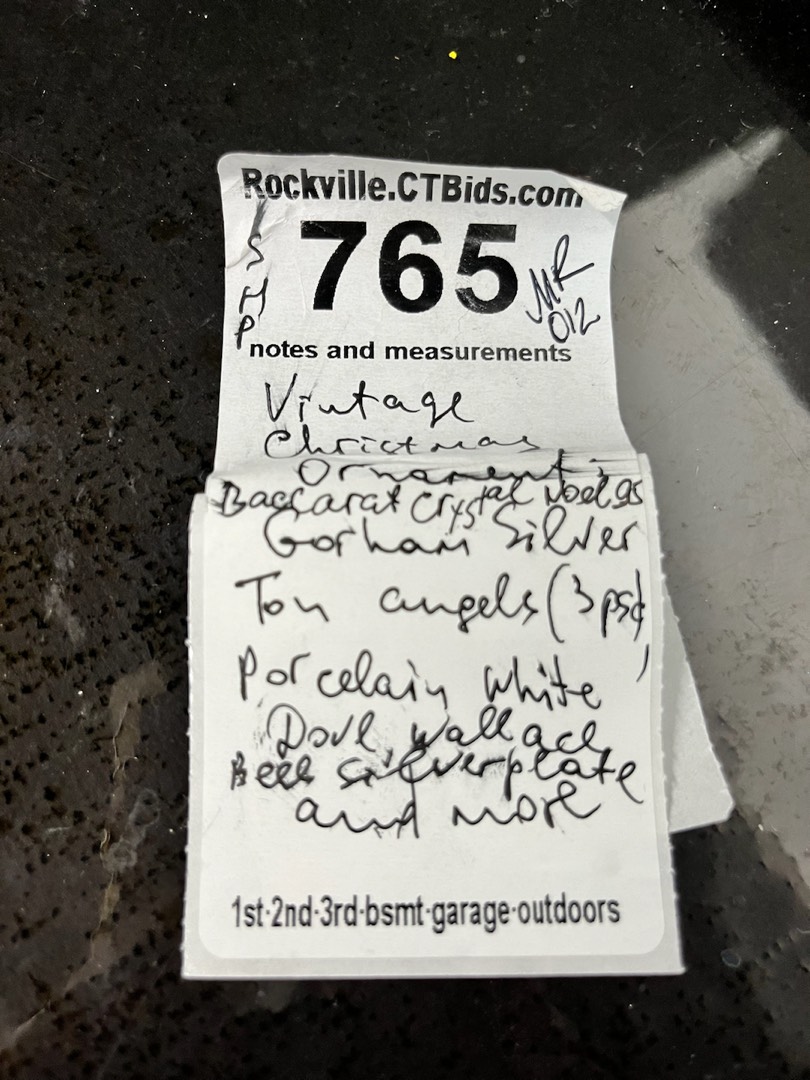 Rockville.CTBids.com
S
H
P
765
MR
012
notes and measurements
Vintage
Christmas
Ornaments
Baccarat Crystal Noel 95
Gorham Silver
Ton angels (3 psc)
Porcelain White
Dove Wallace
Bell silverplate
and more
1st·2nd·3rd·bsmt·garage·outdoors